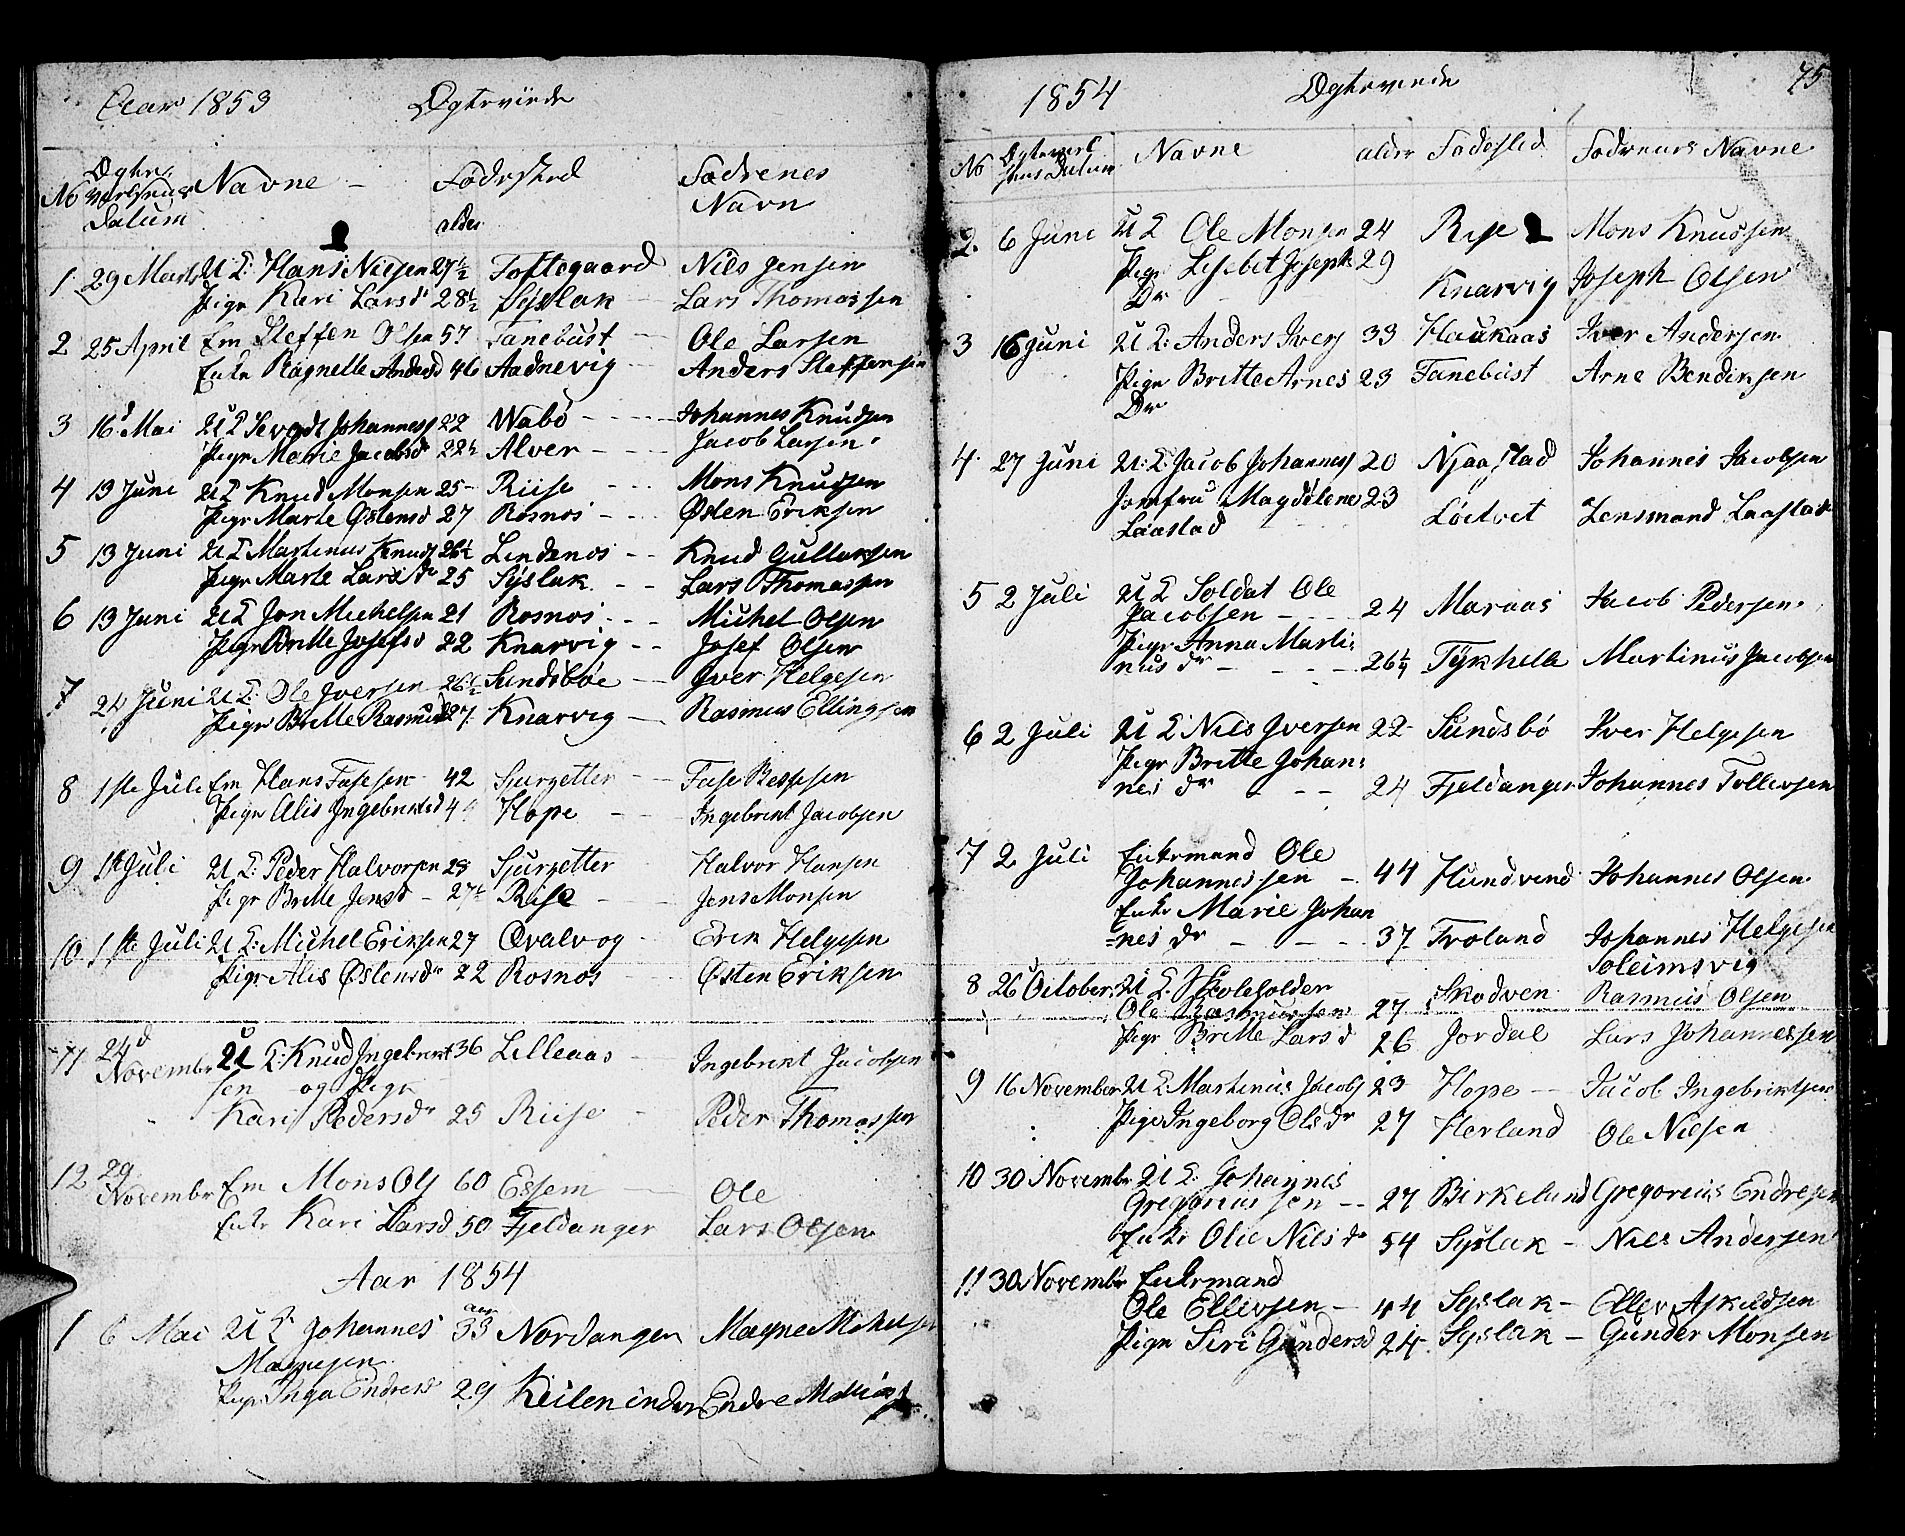 Aar 1853 Ægteviede
No Ægte Navne - Fødested alder Fædrenes Navn
Datum
1 29 Marts U K: Hans Nilsen 27½ Toftegaard Nils Jensen
Pige Kari Larsdr 28½ Syslak Lars Thomassen
2 25 April Em Steffen Olsen 57 Tanebust Ole Larsen
Enke Ragnelle Andersd 46 Aadnevig Anders Steffensen
3 16 Mai U K Johannes 22 Wabø Johannes Knudsen
Pige Marie Jacobsdr 22½ Alver Jacob Larsen
4 13 Juni U K Knud Monsen 25 Riise Mons Knudsen
Pige Marte Østensd 27 Rosnos Østen Eriksen
5 13 Juni U K Martinus Knuds 26½ Lindenos Knud Gullaksen
Pige Marte Larsdr 25 Syslak Lars Thomassen
6 13 Juni U K Jon Michelsen 21 Rosnos Michel Olsen
Pige Britte Josefsd 22 Knarvig Josef Olsen
7 24 Juni U K: Ole Iversen 26½ Sundsbøe Iver Helgesen
Pige Britte Rasmusd 27 Knarvig Rasmus Ellingsen
8 1ste Juli Em Hans 42
Pige Alis Ingebrictsd Hope Ingebrict Jacobsen
9 1st Juli U K: Peder Halvorsen 28 Halvor Hansen
Pige Britte Jensd 27½ Riise Jens Monsen
10 1ste Juli U K: Michel Eriksen 27 Qvalvog Erik Helgesen
Pige Alis Østensdr 22 Rosnos Østen Eriksen
11 24d Novembr U K: Knud Ingebrict 36 Lilleaas Ingebrict Jacobsen
sen og Pige
Kari Pedersdr 25 Riise Peder Thomassen
12 29 Novembr Em Mons Ols 60 Ole
Enke Kari Larsd 50 Fjeldanger Lars Olsen
Aar 1854
1 6 Mai U K Johannes 33 aar Nordanger Magne
Magnesen
Pige Inga Endresd 29 Endre
1854 Ægteviede 75
No Datum Navne alder Fødested Fædrenes Navne
2. 6 Juni U K Ole Monsen 24 Riise Mons Knudsen
Pige Lisebet Joseph 29 Knarvig Joseph Olsen
Dr
3 16 Juni U K: Anders Ivers 33 Haukaas Iver Andersen
Pige Britte Arnes 23 Tanebust Arne Bendiksen
Dr
4 27 Juni U: K: Jacob Johannes 20 Njaastad Johannes Jacobsen
Jomfru Magdelene 23 Lødvet Lensmand Laastad
Laastad
5 2 Juli U K Soldat Ole
Jacobsen 24 Maraas Jacob Pedersen
Pige Anna Marti:
nus dr 26¼ Martinus Jacobsen
6 2 Juli U K Nils Iversen 22 Sundsbø Iver Helgesen
Pige Britte Johan:
nes dr 24 Fjeldanger Johannes Tollevsen
7 2 Juli Enkemand Ole
Johannessen 44 Hundvend Johannes Olsen
Enke Marie Johan
=nes dr 37 Troland Johannes Helgesen
Soleimsvig
8 26 October U K. Skoleholder
Ole Rasmussen 27 Skodven Rasmus Olsen
Pige Britte Lars d 26 Jordal Lars Johannessen
9 16 November U K Martinus Jacobs 23 Hope Jacob Ingebrictsen
Pige Ingeborg Ols dr 27 Herland Ole Nilsen
10 30 Novembr U K: Johannes
Gregoriussen 27 Birkeland Gregorius Endresen
Enke Olie Nilsdr 54 Syslak Nils Andersen
11 30 Novembr Enkemand
Ole Ellevsen 44 Syslak Ellev Askildsen
Pige Siri Gundersd 24 Syslak Gunder Monsen